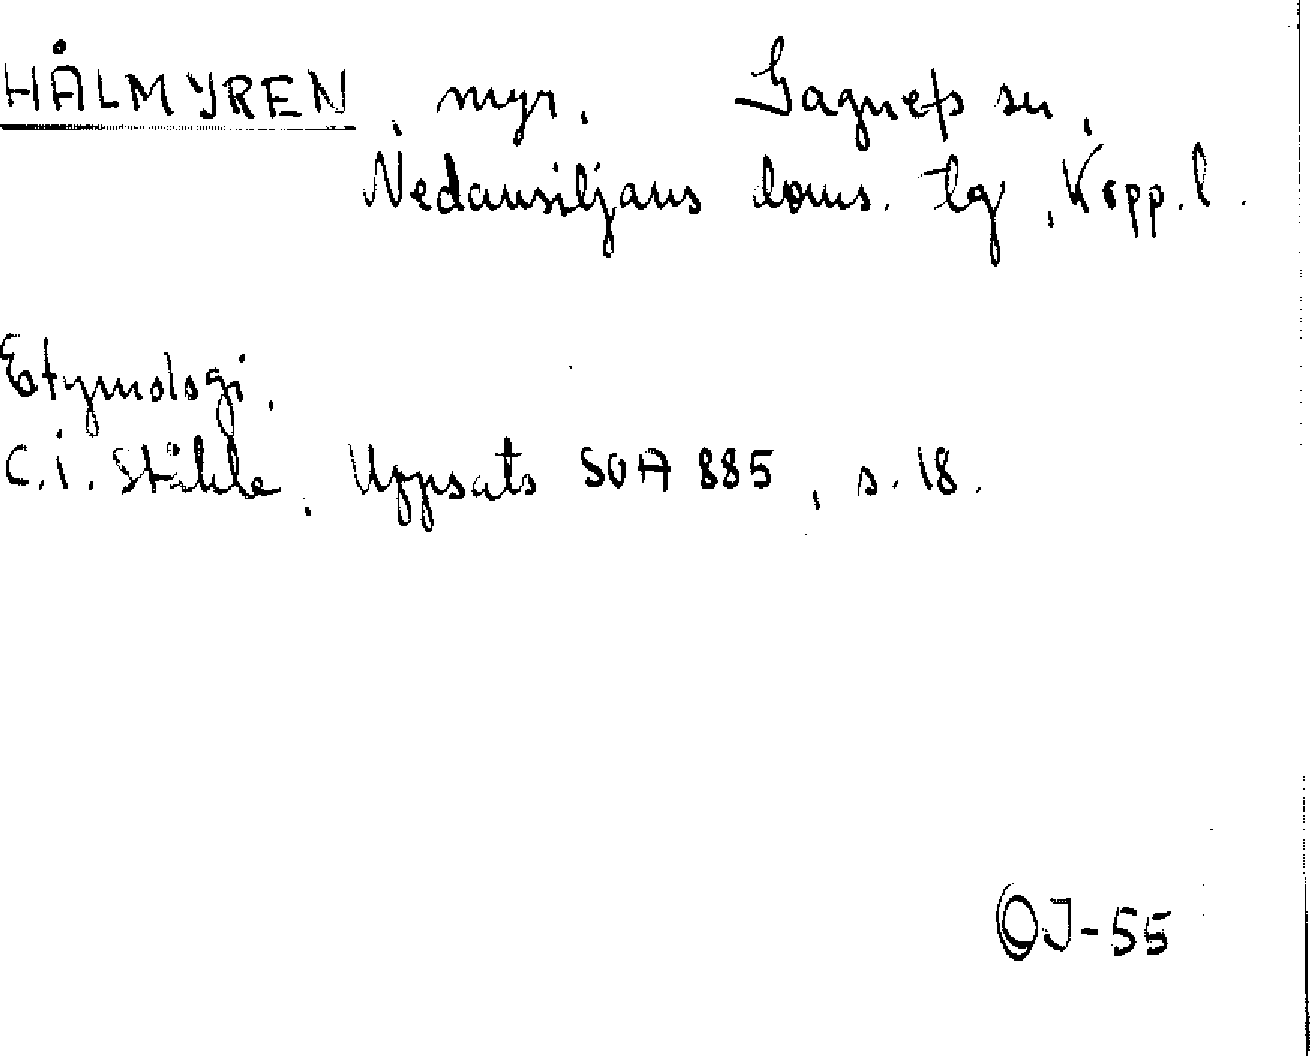 HÅLMYREN, myr. Gagnefs sn,
Nedansiljans doms. tg, Kopp. l.
Etymologi.
C.I. Ståhle, Uppsats SOA 885, s. 18.
OJ-55